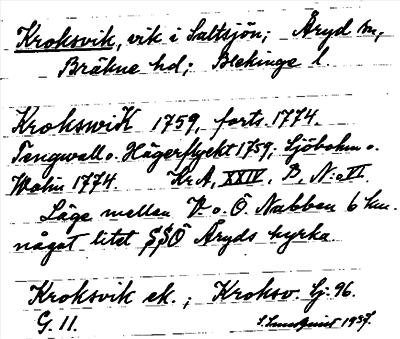 Kroksvik, vik i Saltsjön; Åryd sn,
Bräkne hd; Blekinge l.
KrokswiK 1759, forts. 1774.
Tengwall o. Hägerflyckt 1759; Sjöbohm o.
Wahn 1774. KrA, XXIV, B, N:o VI.
Läge mellan V. o. Ö. Nabben 6 km.
något litet SSÖ Åryds kyrka.
Kroksvik ek.; Kroksv. Sj. 96.
G. 11. S. Lundquist 1937.